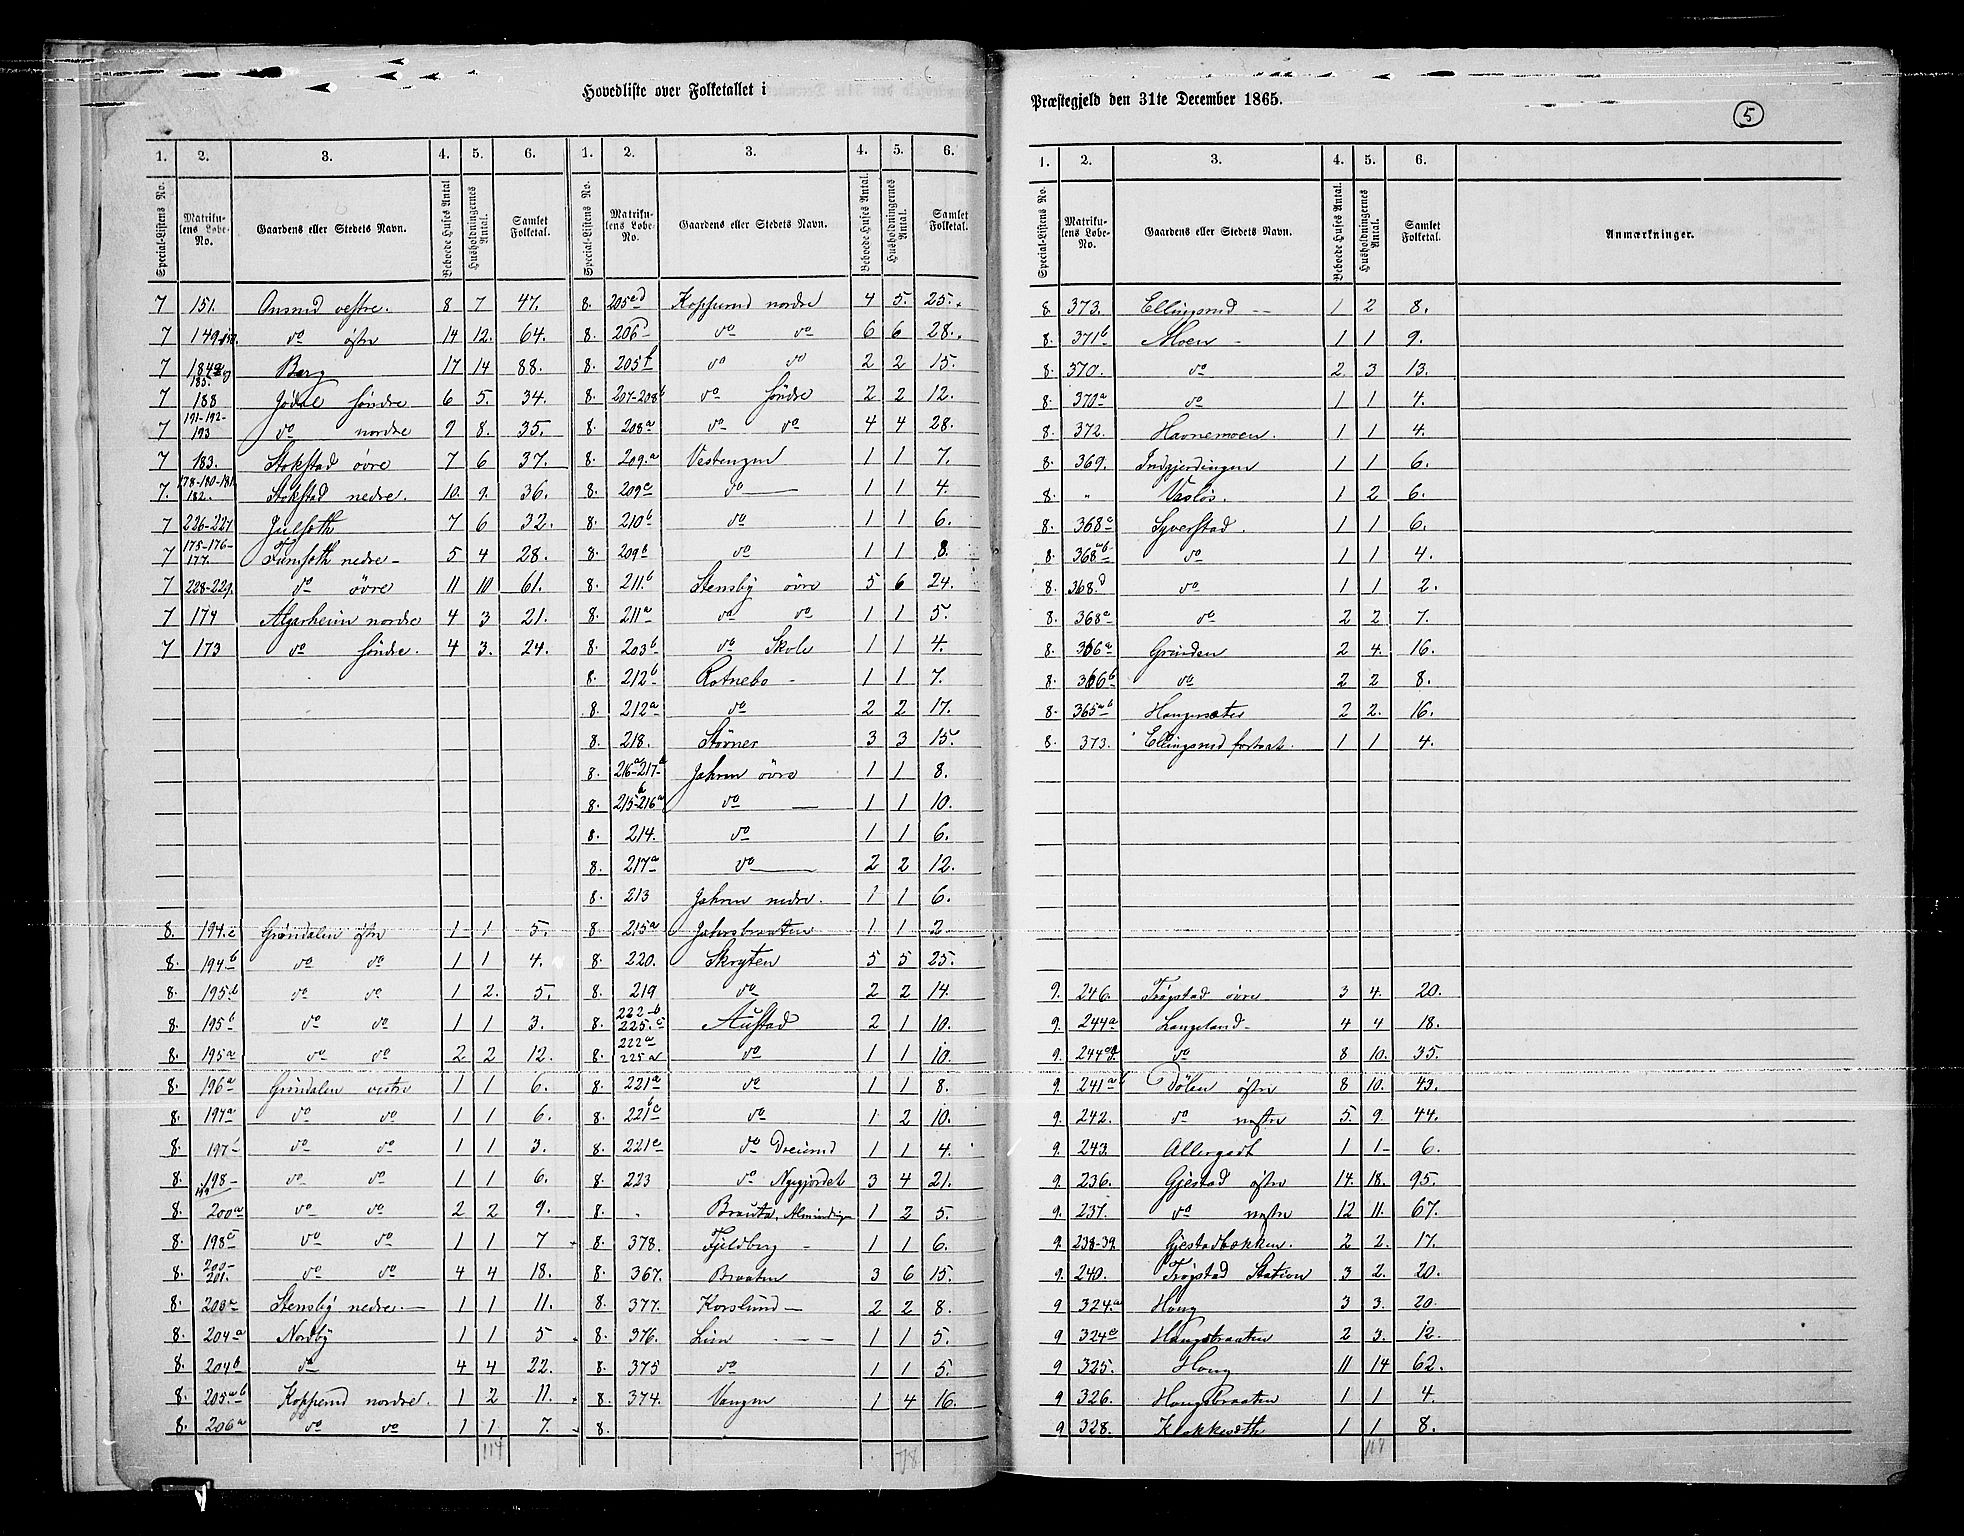 Hovedliste over Folketallet i
Præstegjeld den 31te December 1865.
5
1. 2. 3. 4. 5. 6. 1. 2. 3. 4. 5. 6.
Special-Listens No. Matrikulens Løbe-No. Gaardens eller Stedets Navn. Beboede Huses Antal. Husholdningernes Antal. Samlet Folketal. Special-Listens No. Matrikulens Løbe-No. Gaardens eller Stedets Navn. Beboede Huses Antal. Husholdningernes Antal. Samlet Folketal.
7 151. vestre. 8 7 47.
7 149-150. do østre 14 12. 64.
7 184 185. Berg 17 14 88.
7 188 Jødal søndre 6 5. 34.
7 191-192-193 do nordre 9 8. 35.
7 183. Stokstad øvre 7 6 37.
7. 178-180-181. 182. Stokstad nedre. 10. 9. 36.
7 226-227 Julseth 7 6 32.
7 175-176-177. nedre 5 4 28.
7 228-229. do øvre 11 10 61.
7 174 Algarheim nordre 4 3 21.
7 173 do søndre. 4 3. 24.
8. 194.c Grøndalen østre 1 1 5.
8. 194b do do 1 1 4.
8. 195.b do do 1 2. 5.
8. 195b do do 1 1 3.
8. 195a do do 2 2 12.
8. 196a Grøndalen vestre 1 1 6.
8. 197a do do 1 1 6.
8. 197b do do 1 1 3.
8. 198-199 do do 1 1 6.
8. 200a do do 2 2 9.
8. 198c do do 1 1 7
8. 200-201. do do 4 4 18.
8. 203a Stensby nedre. 1 1 11.
8. 204a Nordby 1 1 5
8. 204b do 4 4 22.
8. 205.ab Kopperud nordre. 1 2 11.
8. 206a do do 1 1. 7.
117
8. 205ad Kopperud nordre 4 5. 25.
8. 206 do do 6 6 28.
8. 205b do do 2 2 15.
8. 207-208b do søndre 2 2 12.
8. 208a do do 4 4 28.
8. 209.a Vestengen 1 1 7.
8. 209c do 1 1 4.
8. 210b do 1 1 6.
8. 209b do 1 1 8.
8. 211b Stensby øvre 5 6 24.
8. 211a do do 1 1 5.
8. 203b do Skole 1 1 4.
8. 212b Rotnebo 1 1 7.
8. 212a do 2 2 17.
8. 218. Støvner 3 3 15.
8. 216a-217b Jahren øvre 1 1 8.
8. 215b-216a do 1 1 10.
8. 214. do 1 1 6.
8. 217a do 2 2 12.
8. 213 Jahren nedre. 1 1 6.
8. 215a Jahrsbraaten 1 1 2
8. 220. Skryten 5 5 25.
8. 219 do 2 2 14.
8. 222b 225.c Austad 2 1 10.
8. 222a 225a do 1 1 10.
8. 221a do 1 1 8.
8. 221 do 1 2 10.
8. 221c do Dreierud 1 1 4.
8. 223 do Nygjordet 3 4 21.
8. Almindingen 1 2 5.
8. 378. Fjeldberg 1 1 6.
8. 367. Braaten 3 6 15.
8. 377. Korslund 2 2 8.
8. 376. Lien 1 1 5.
8. 375 do 1 1 5.
8. 374. Vangen 1 4 16.
8.
1. 2. 3. 4. 5. 6.
Special-Listens No. Matrikulens Løbe-No. Gaardens eller Stedets Navn. Beboede Huses Antal. Husholdningernes Antal. Samlet Folketal. Anmærkninger.
8. 373. Ellingsrud 1 2 8.
8. 371b Moen 1 1 9.
8. 370. do 2 3 13.
8. 370a do 1 1 4.
8. 372. Havnemoen. 1 1 4.
8. 369. Indgjerdingen 1 1 6.
8. " 1 2 6.
8. 368 Syverstad. 1 1 6.
8. 368 do 1 1 4.
8. 368.d do 1 1 2.
8. 368a do 2 2 7.
8. 366a Grinden 2 4. 16.
8. 366b do 2 2 8.
8. 365ab 2 2. 16.
8. 373. Ellingsrud fortsat. 1 1 4.
9. 246. Trøgstad øvre 3 4. 20.
9. 244a Langeland 4 4 18.
9. 244 do 8 10. 35.
9. 241ab Dølen østre 8 10. 43.
9. 242. do vestre 5. 9. 44.
9. 243. Allergodt 1 1 6.
9. 236. Gjestad østre 14. 18. 95.
9. 237. do vestre 12 11. 67.
9. 238-39. Gjestadbakken. 2 2. 17.
9. 240. Trøgstad Station 3 2. 20.
9 324.a Houg 3 3. 20.
9 324 Hougsbraaten 2 3. 12.
9 325. Houg 11 14 62.
9 326. Hougsbraaten 1 1 4.
9 328. Klokkerseth 1 1 8.
117